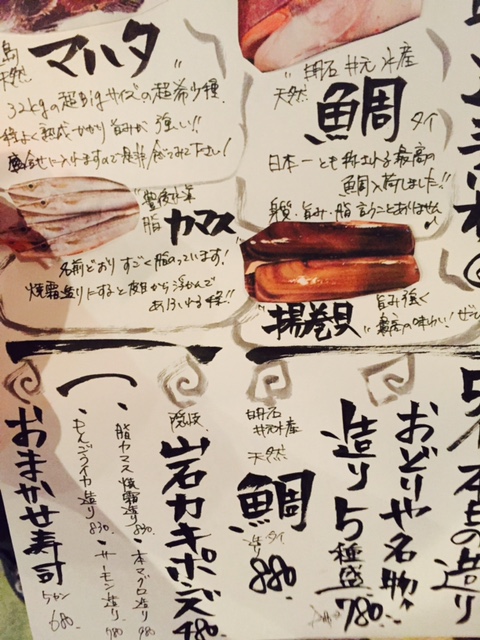 天然
マハタ
32kgの超Bigサイズの超希少種
程よく熟成かかり旨みが強い!!
盛合せに入れますので是非食べてみて下さい!
明石
水産
天然
鯛
タイ
日本一とも称される最高の
鯛入荷しました!!
身質・旨み・脂言うことありません
脂カマス
名前どおりすごく脂のっています!
焼霜造りにすると皮目から
揚巻貝
旨み強く
最高の味わい!
本日の造り
おどりや名物
造り5種盛
780.
明石
水産
天然
鯛
タイ
造り
880
隠岐
岩カキポンズ
480
脂カマス焼霜造り 830.
本マグロ造り 980
もんごうイカ造り 830.
サーモン造り 780
おまかせ寿司
5カン
680.